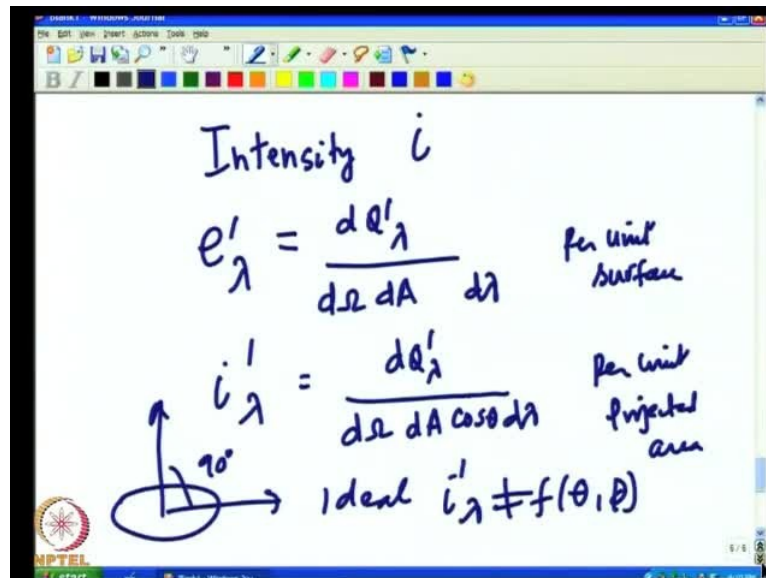 Blank1 - Windows Journal
File Edit View Insert Actions Tools Help
B I
Intensity i
e'λ = dQ'λ / dΩ dA dλ Per unit surface
i'λ = dQ'λ / dΩ dA cosθ dλ Per unit projected area
90°
Ideal i'λ ≠ f(θ, φ)
6/6
NPTEL
start